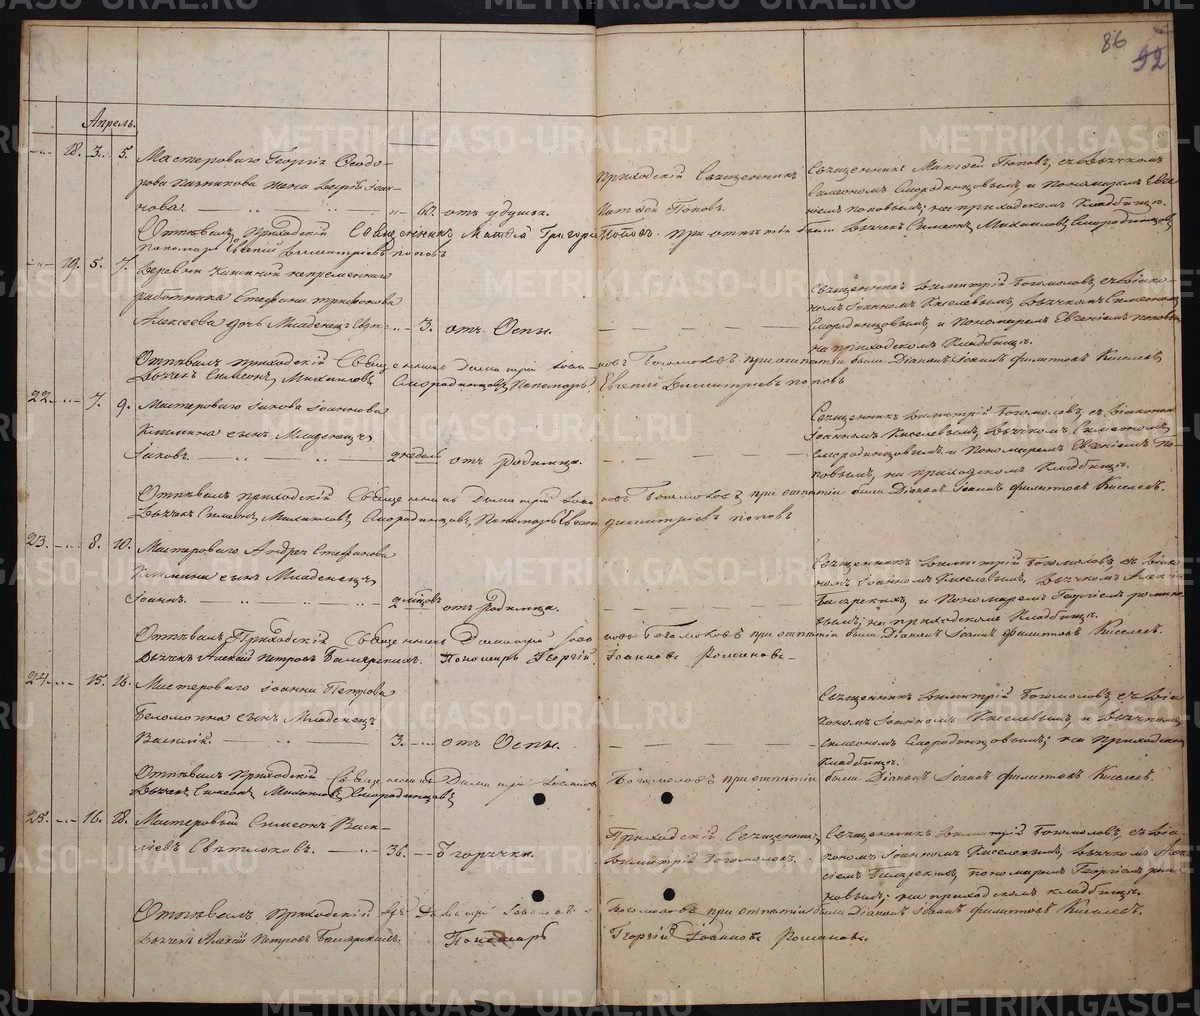 86
92
Апрель.
18. 3. 5. Мастероваго Георгія Ѳеодо-
рова жена Іоан-
нова. 60. отъ удушья.
Приходскій Священникъ
Матѳей Поповъ.
Священникъ Матѳей Поповъ, съ Дьячкомъ
Симеономъ Смородинцовымъ, и пономаремъ Евге-
ніемъ Поповымъ, на приходскомъ кладбищѣ.
Отпѣвалъ Приходскій Священникъ Матѳей Поповъ. при отпѣтіи были Дьячекъ Симеонъ Михаиловъ Смородинцовъ
Пономарь Евгеній Димитріевъ Поповъ
19. 5. 7. Деревни непременнаго
работника Стефана Трифонова
Алексеева дочь Младенецъ 3. отъ Оспы.
Священникъ Димитрій Богомоловъ, съ Діако-
номъ Іоанномъ Киселевымъ, Дьячкомъ Симеономъ
Смородинцовымъ, и Пономаремъ Евгеніемъ Поповымъ
на приходскомъ кладбищѣ.
Отпѣвалъ приходскій Священникъ Димитрій Богомоловъ при отпѣтіи были Діаконъ Іоаннъ Филитовъ Киселевъ
Дьячекъ Симеонъ Михаиловъ Смородинцовъ, Пономарь Евгеній Димитріевъ Поповъ
22. 7. 9. Мастероваго Іакова Іоаннова
сынъ Младенецъ
Іаковъ. 2 недель отъ родимца.
Священникъ Димитрій Богомоловъ, съ Діакономъ
Іоанномъ Киселевымъ, Дьячкомъ Симеономъ
Смородинцовымъ и Пономаремъ Евгеніемъ По-
повымъ, на приходскомъ Кладбищѣ.
Отпѣвалъ приходскій Священникъ Димитрій Богомоловъ при отпѣтіи были Діаконъ Іоаннъ Филитовъ Киселевъ.
Дьячекъ Симеонъ Михаиловъ Смородинцовъ, Пономарь Евгеній Димитріевъ Поповъ
23. 8. 10. Мастероваго Андрея Стефанова
сынъ Младенецъ
Іоаннъ. 2 мѣсяцовъ отъ родимца.
Священникъ Димитрій Богомоловъ, съ Діако-
номъ Іоанномъ Киселевымъ, Дьячкомъ
и Пономаремъ Георгіемъ Романо-
вымъ, на приходскомъ Кладбищѣ.
Отпѣвалъ Приходскій Священникъ Димитрій Богомоловъ при отпѣтіи были Діаконъ Іоаннъ Филитовъ Киселевъ.
Дьячекъ Алексѣй Петровъ Пономарь Георгій Іоанновъ Романовъ
24. 15. 16. Мастероваго Іоанна Петрова
сынъ Младенецъ
Василій. 3. отъ Оспы.
Священникъ Димитрій Богомоловъ, съ Діа-
кономъ Іоанномъ Киселевымъ, и Дьячкомъ
Симеономъ Смородинцовымъ; на Приходскомъ
Кладбищѣ.
Отпѣвалъ Приходскій Священникъ Димитрій Богомоловъ при отпѣтіи были Діаконъ Іоаннъ Филитовъ Киселевъ.
Дьячекъ Симеонъ Михаиловъ Смородинцовъ
25. 16. 18. Мастеровый Симеонъ Васи-
ліевъ Свѣтлаковъ. 36. горячки.
Приходскій Священникъ
Димитрій Богомоловъ.
Священникъ Димитрій Богомоловъ, съ Діа-
кономъ Іоанномъ Киселевымъ, Дьячкомъ Алек-
сіемъ пономаремъ Георгіемъ Рома-
новымъ; на приходскомъ кладбищѣ.
Отпѣвалъ приходскій Димитрій Богомоловъ при отпѣтіи были Діаконъ Іоаннъ Филитовъ Киселевъ.
Дьячекъ Алексѣй Петровъ Пономарь Георгій Іоанновъ Романовъ.
METRIKI.GASO-URAL.RU